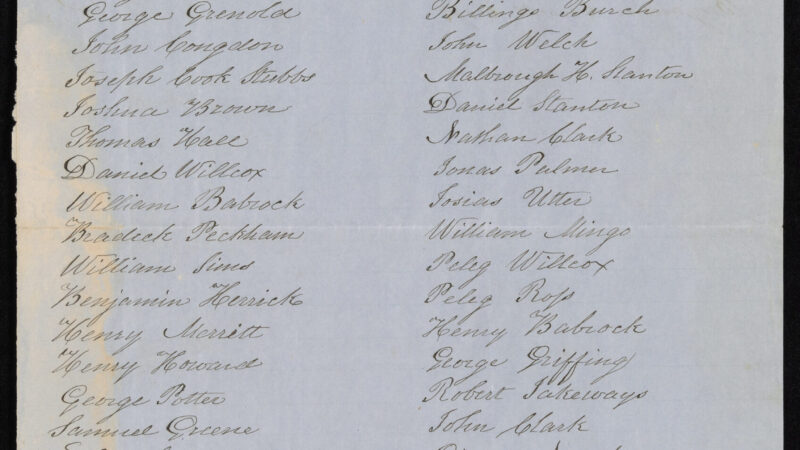 George Grenold
John Congdon
Joseph Cook Stubbs
Joshua Brown
Thomas Hall
Daniel Willcox
William Babcock
Bradick Peckham
William Sims
Benjamin Herrick
Henry Merritt
Henry Howard
George Potter
Samuel Greene
Billings Burch
John Welch
Malbrough H. Stanton
Daniel Stanton
Nathan Clark
Jonas Palmer
Josias Utter
William Mingo
Peleg Willcox
Peleg Ross
Henry Babcock
George Griffing
Robert Jakeways
John Clark